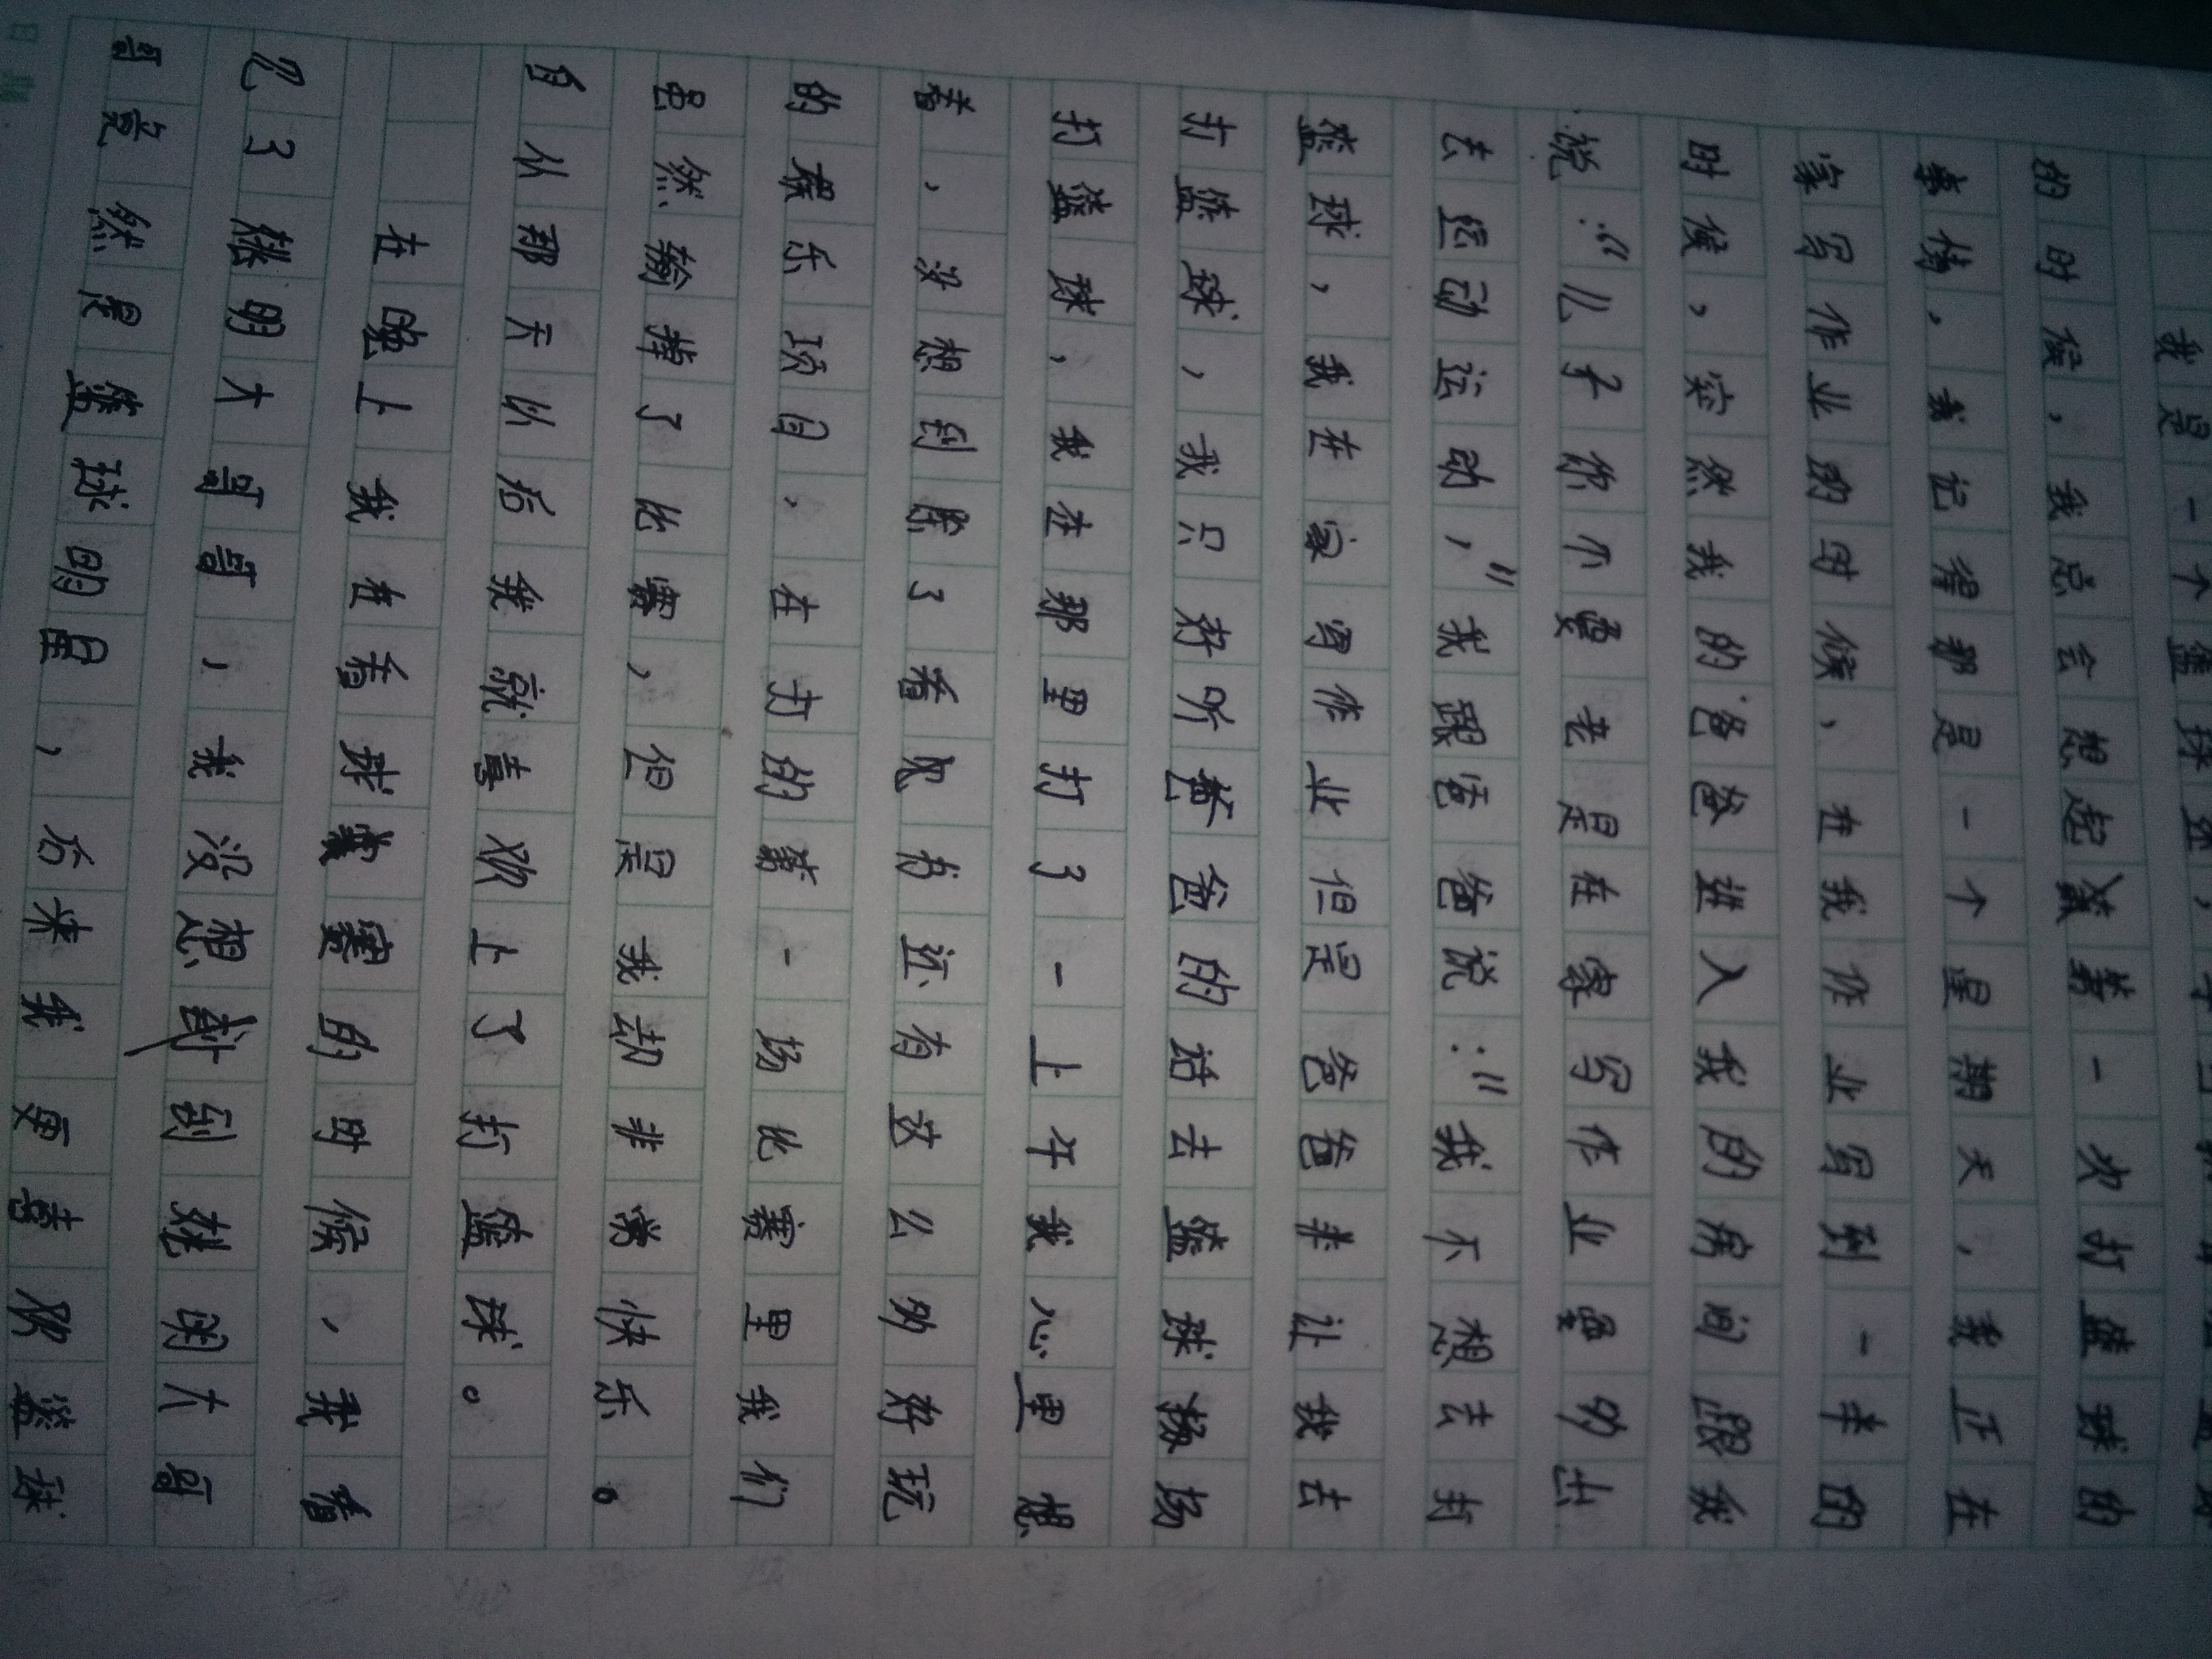 我是一个篮球
的时候，我总会想起第一次打篮球的
事情，我记得那是一个星期天，我正在
家写作业的时候，在我作业写到一半的
时候，突然我的爸爸进入我的房间跟我
说：“儿子你不要老是在家写作业要多出
去运动运动，”我跟爸爸说：“我不想去打
篮球，我在家写作业但是爸爸非让我去
打篮球，我只好听爸爸的话去篮球场
打篮球，我在那里打了一上午我心里想
着，没想到除了看见书还有这么多好玩
的娱乐项目，在打的第一场比赛里我们
虽然输掉了比赛，但是我却非常快乐。
自从那天以后我就喜欢上了打篮球。
在晚上我在看球赛的时候，我看
见了姚明大哥哥，我没想到姚明大哥
哥竟然是篮球明星，后来我更喜欢篮球